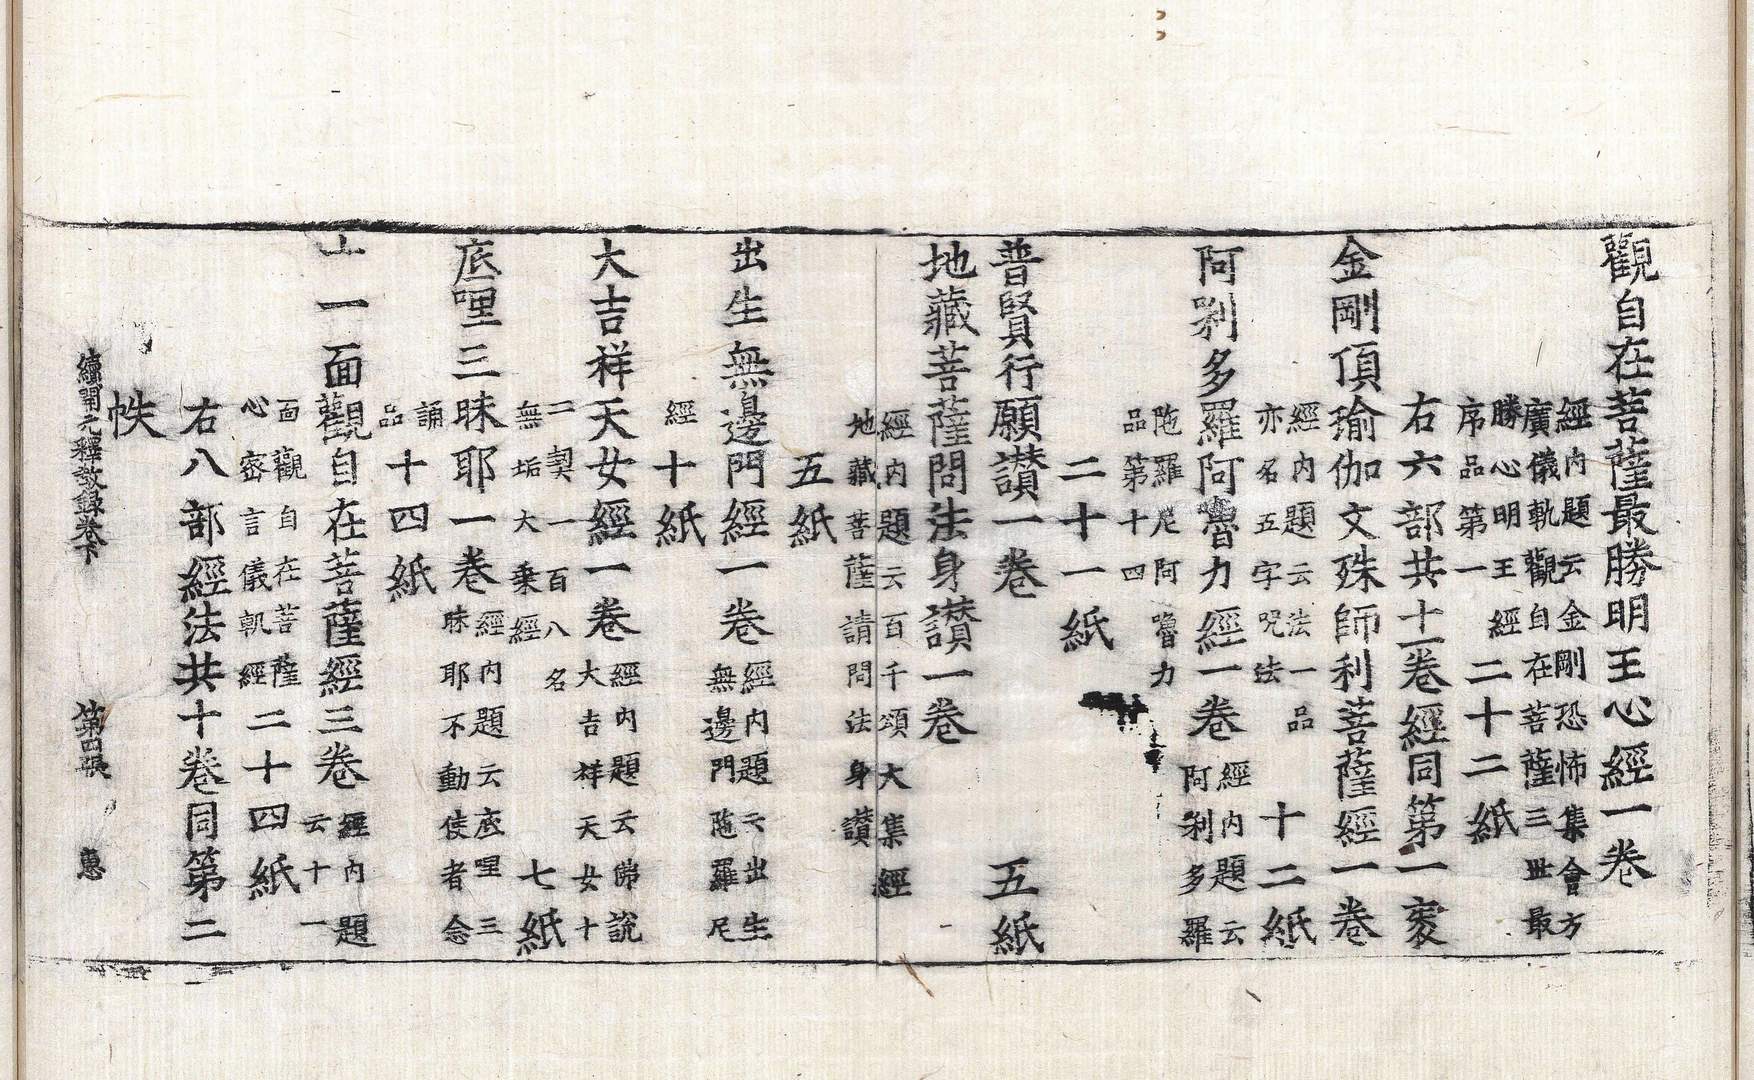 觀自在菩薩最勝明王心經一卷
經內題云金剛恐怖集會方
廣儀軌觀自在菩薩三世最
勝心明王經
序品第一
二十二紙
右六部共十一卷經同第一袠
金剛頂瑜伽文殊師利菩薩經一卷
經內題云法一品
亦名五字呪法
十二紙
阿唎多羅阿魯力經一卷
經內題云
阿利多羅
陁羅尼阿嚕力
品第十四
二十一紙
普賢行願讃一卷 五紙
地藏菩薩問法身讃一卷
經內題云百千頌大集經
地藏菩薩請問法身讃
五紙
出生無邊門經一卷
經內題云出生
無邊門陁羅尼
經
十紙
大吉祥天女經一卷
經內題云佛說
大吉祥天女十
二契一百八名
無垢大乘經
七紙
底哩三昧耶一卷
經內題云底哩三
昧耶不動使者念
誦
品
十四紙
十一面觀自在菩薩經三卷
經內題
云十一
面觀自在菩薩
心密言儀軌經
二十四紙
右八部經法共十卷同第二
帙
續開元釋教錄卷下 第四張 惠